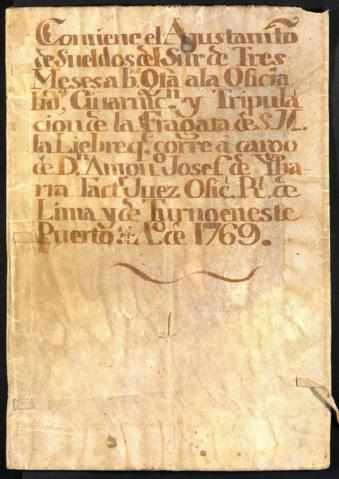 Comiene el Ajustamto
de Sueldos del Sur de Tres
Meses a bna Qta a la Oficia
lida Guarnicn y Tripula
cion de la Fragata de S.M.
la Liebre q. corre a cargo
de Dn Anton. Josef de Yba-
rra Factr Juez Ofic. Rl. de
Lima y de Turno en este
Puerto: Ao. de 1769.